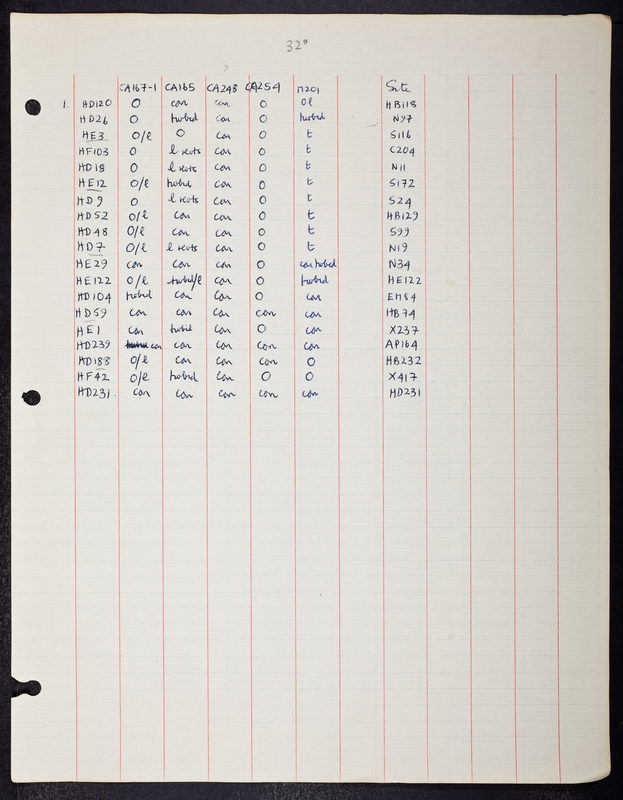 32°
CA167-1 CA165 CA248 CA254 M201 Site
1. HD120 O con con O Ol HB118
HD26 O turbid con O turbid N97
HE3 O/l O con O t S116
HF103 O l revts con O t C204
HD18 O l revts con O t N11
HE12 O/l turbid con O t S172
HD9 O l revts con O t S24
HD52 O/l con con O t HB129
HD48 O/l con con O t S99
HD7 O/l l revts con O t N19
HE29 con con con O con turbid N34
HE122 O/l turbid/l con O turbid HE122
HD104 turbid con con O con EM84
HD59 con con con con con HB74
HE1 con turbid con O con X237
HD239 con con con con con AP164
HD188 O/l con con con O HB232
HF42 O/l turbid con O O X417
HD231. con con con con con HD231